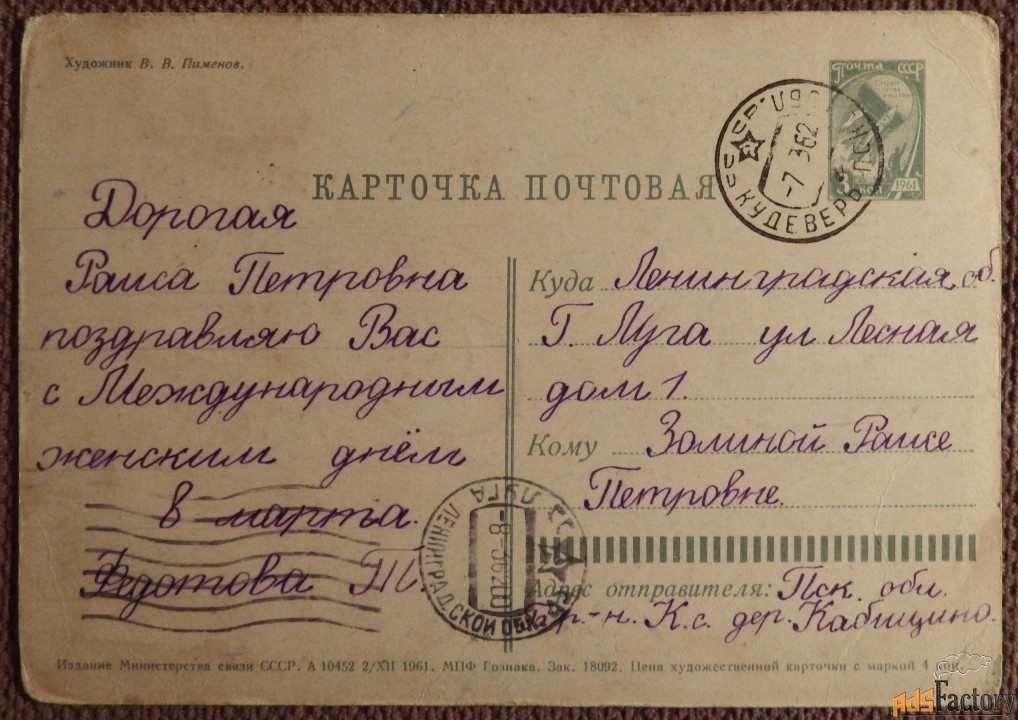 Художник В. В. Пименов.
ПОЧТА СССР
1961
КАРТОЧКА ПОЧТОВАЯ
СССР
КУДЕВЕРЬ
-7 362
Дорогая
Раиса Петровна
поздравляю Вас
с Международным
женским днём
8 марта.
Федотова Т.
Куда Ленинградская об.
Г. Луга ул Лесная
дом 1.
Кому Зиминой Раисе
Петровне.
ЛУГА ЛЕНИНГРАДСКОЙ ОБЛ.
-8-362
Адрес отправителя: Пск. обл.
р-н. К.с. дер. Кабищино.
Издание Министерства связи СССР. А 10452 2/XII 1961. МПФ Гознака. Зак. 18092. Цена художественной карточки с маркой 4 коп.
AdsFactory